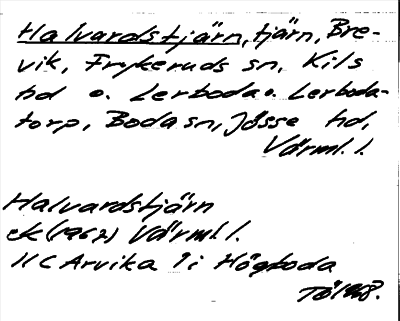 Halvardstjärn, tjärn, Bre-
vik, Frykeruds sn, Kils
hd o. Lerboda o. Lerboda-
torp, Boda sn, Jösse hd,
Värml. l.
Halvardstjärn
ek (1962) Värml. l.
11C Arvika 9i Högboda